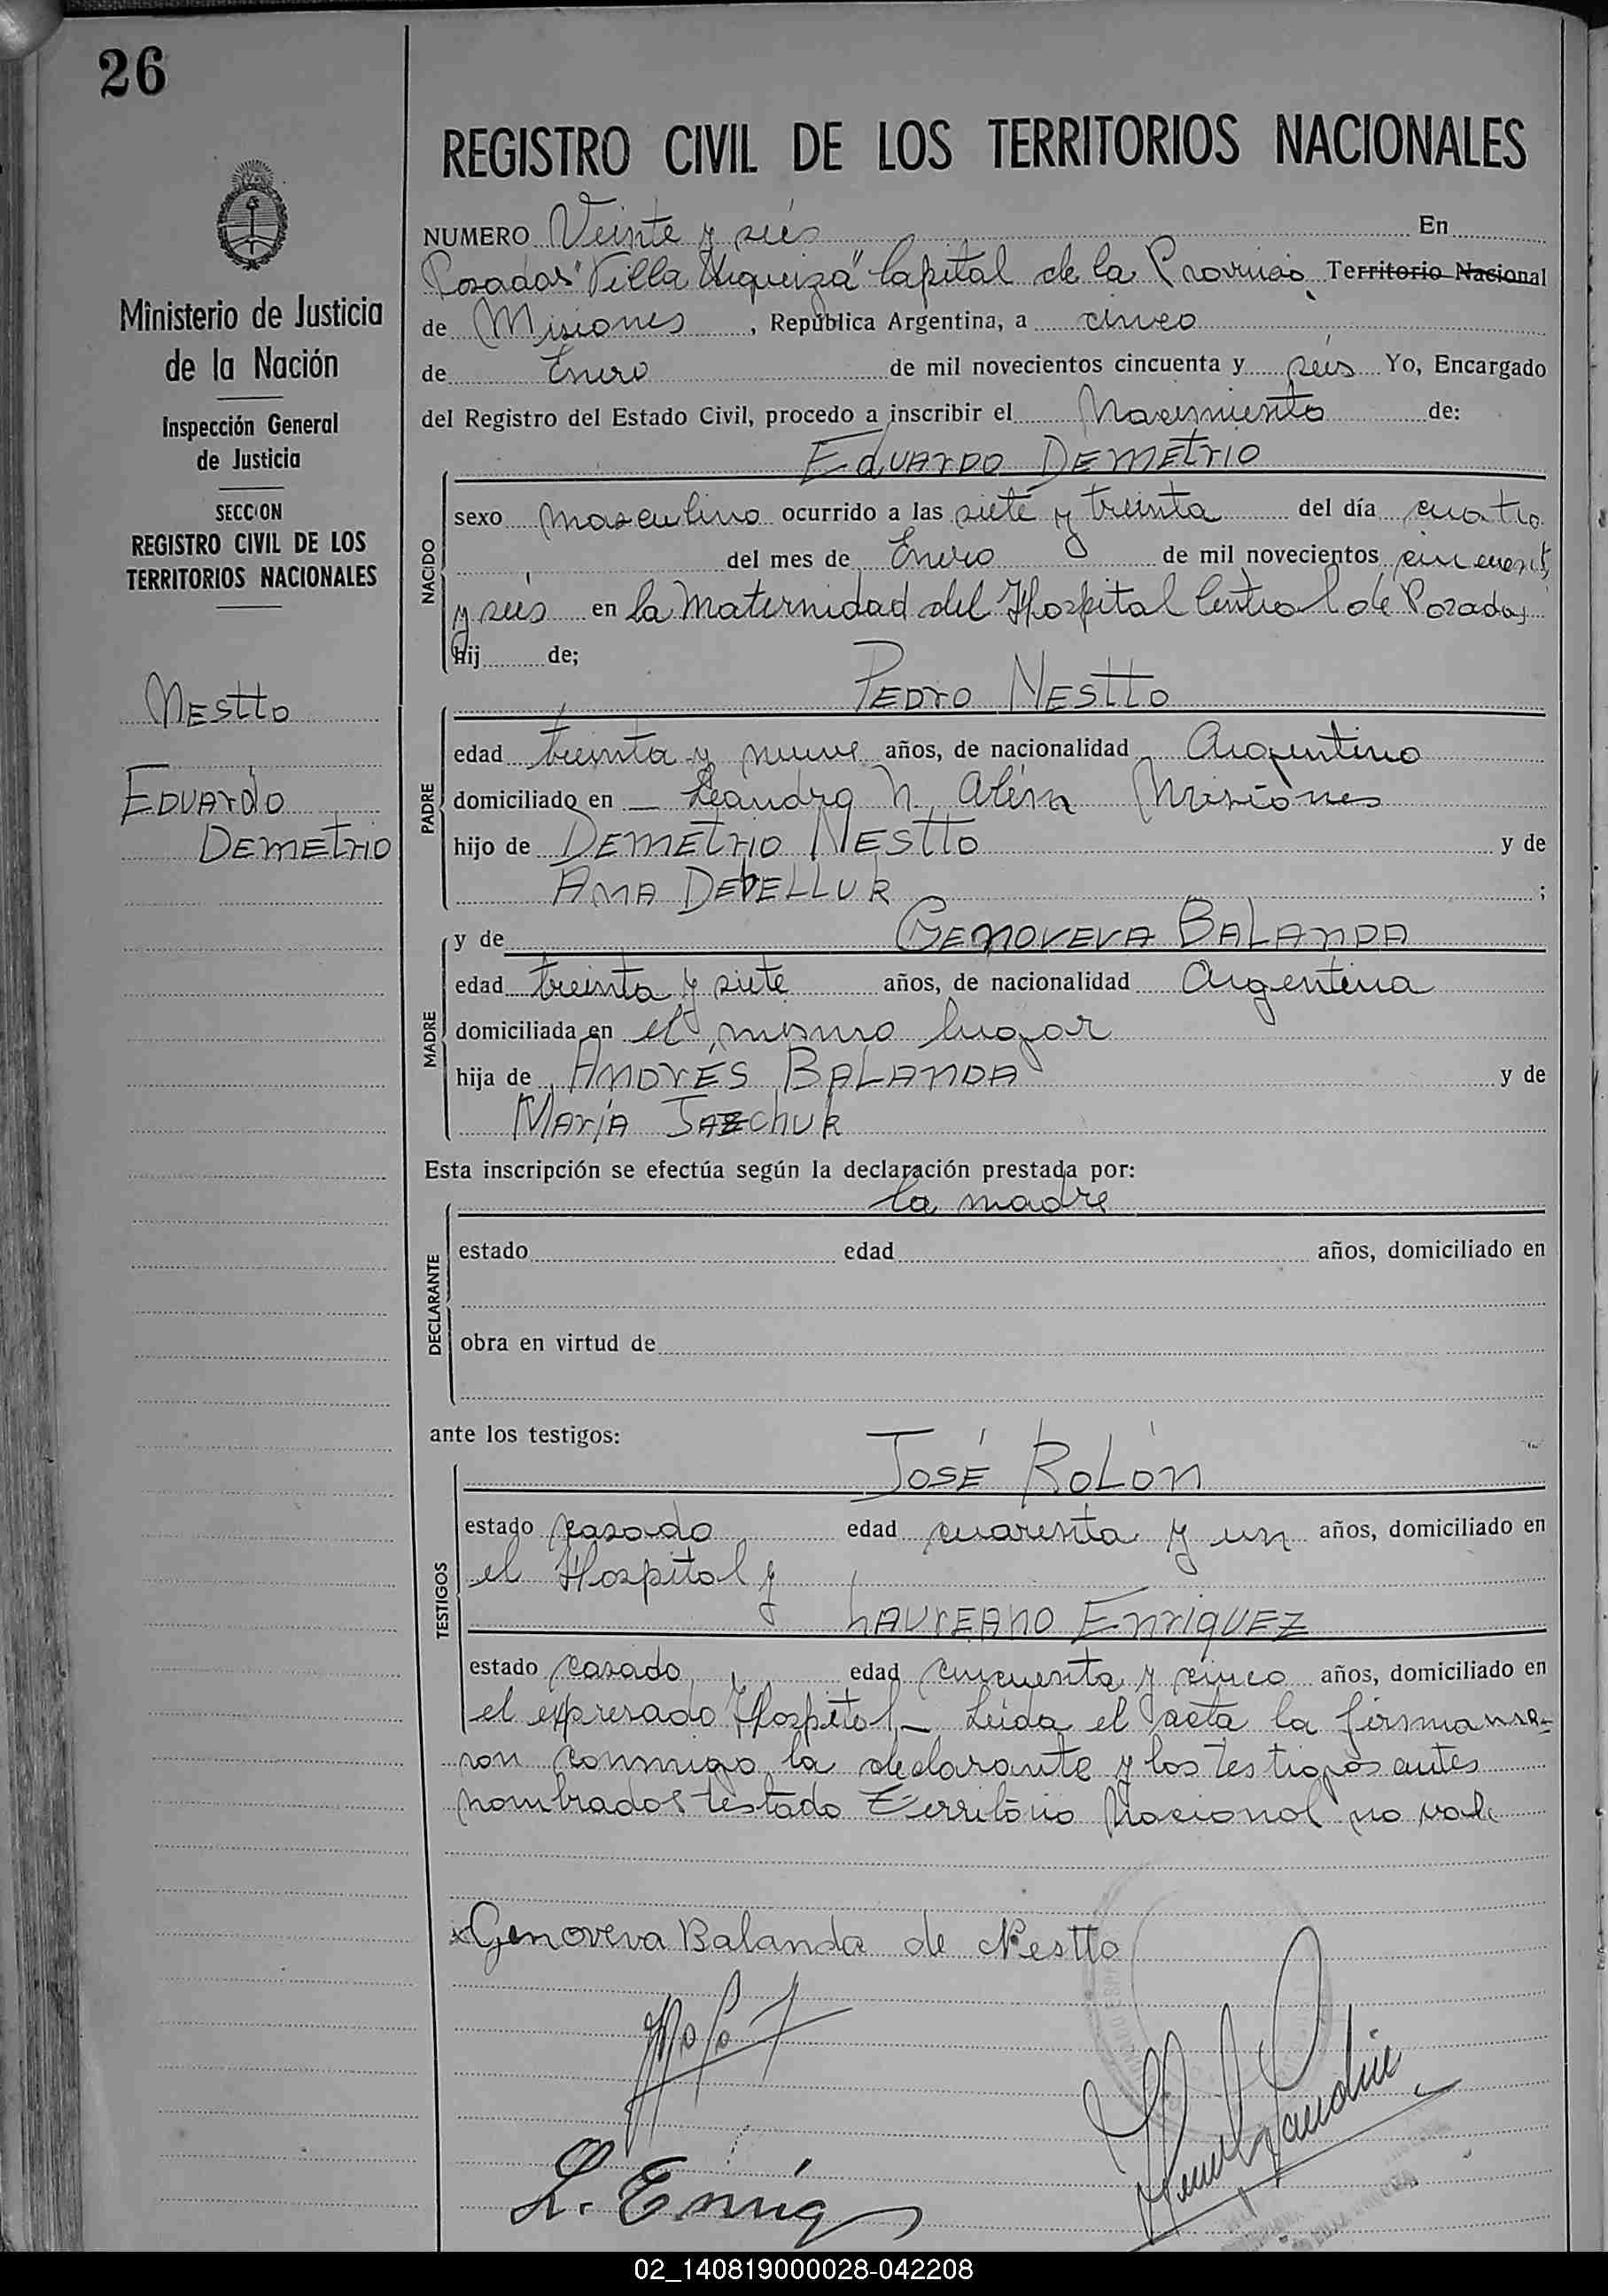 26
REGISTRO CIVIL DE LOS TERRITORIOS NACIONALES
Ministerio de Justicia
de la Nación
Inspección General
de Justicia
SECCION
REGISTRO CIVIL DE LOS
TERRITORIOS NACIONALES
Nestto
Eduardo
Demetrio
NUMERO Veinte y seis En
Posadas "Villa Urquiza" Capital de la Provincia Territorio Nacional
de Misiones, República Argentina, a cinco
de Enero de mil novecientos cincuenta y seis Yo, Encargado
del Registro del Estado Civil, procedo a inscribir el Nacimiento de:
Eduardo Demetrio
NACIDO
sexo masculino ocurrido a las siete y treinta del día cuatro
del mes de Enero de mil novecientos cincuenta
y seis en la Maternidad del Hospital Central de Posadas
hij de;
Pedro Nestto
PADRE
edad treinta y nueve años, de nacionalidad Argentino
domiciliado en — Leandro N. Além Misiones
hijo de Demetrio Nestto y de
Ana ;
MADRE
y de Genoveva Balanda
edad treinta y siete años, de nacionalidad Argentina
domiciliada en el mismo lugar
hija de Andrés Balanda y de
María
Esta inscripción se efectúa según la declaración prestada por:
la madre
DECLARANTE
estado edad años, domiciliado en
obra en virtud de
ante los testigos:
José Rolón
TESTIGOS
estado casado edad cuarenta y un años, domiciliado en
el Hospital y
Laureano Enriquez
estado casado edad cincuenta y cinco años, domiciliado en
el expresado Hospital — Leida el acta la
ron conmigo la declarante y los testigos antes
nombrados testado Territorio Nacional no vale
x Genoveva Balanda de Nestto
L. Enriq
02_140819000028-042208